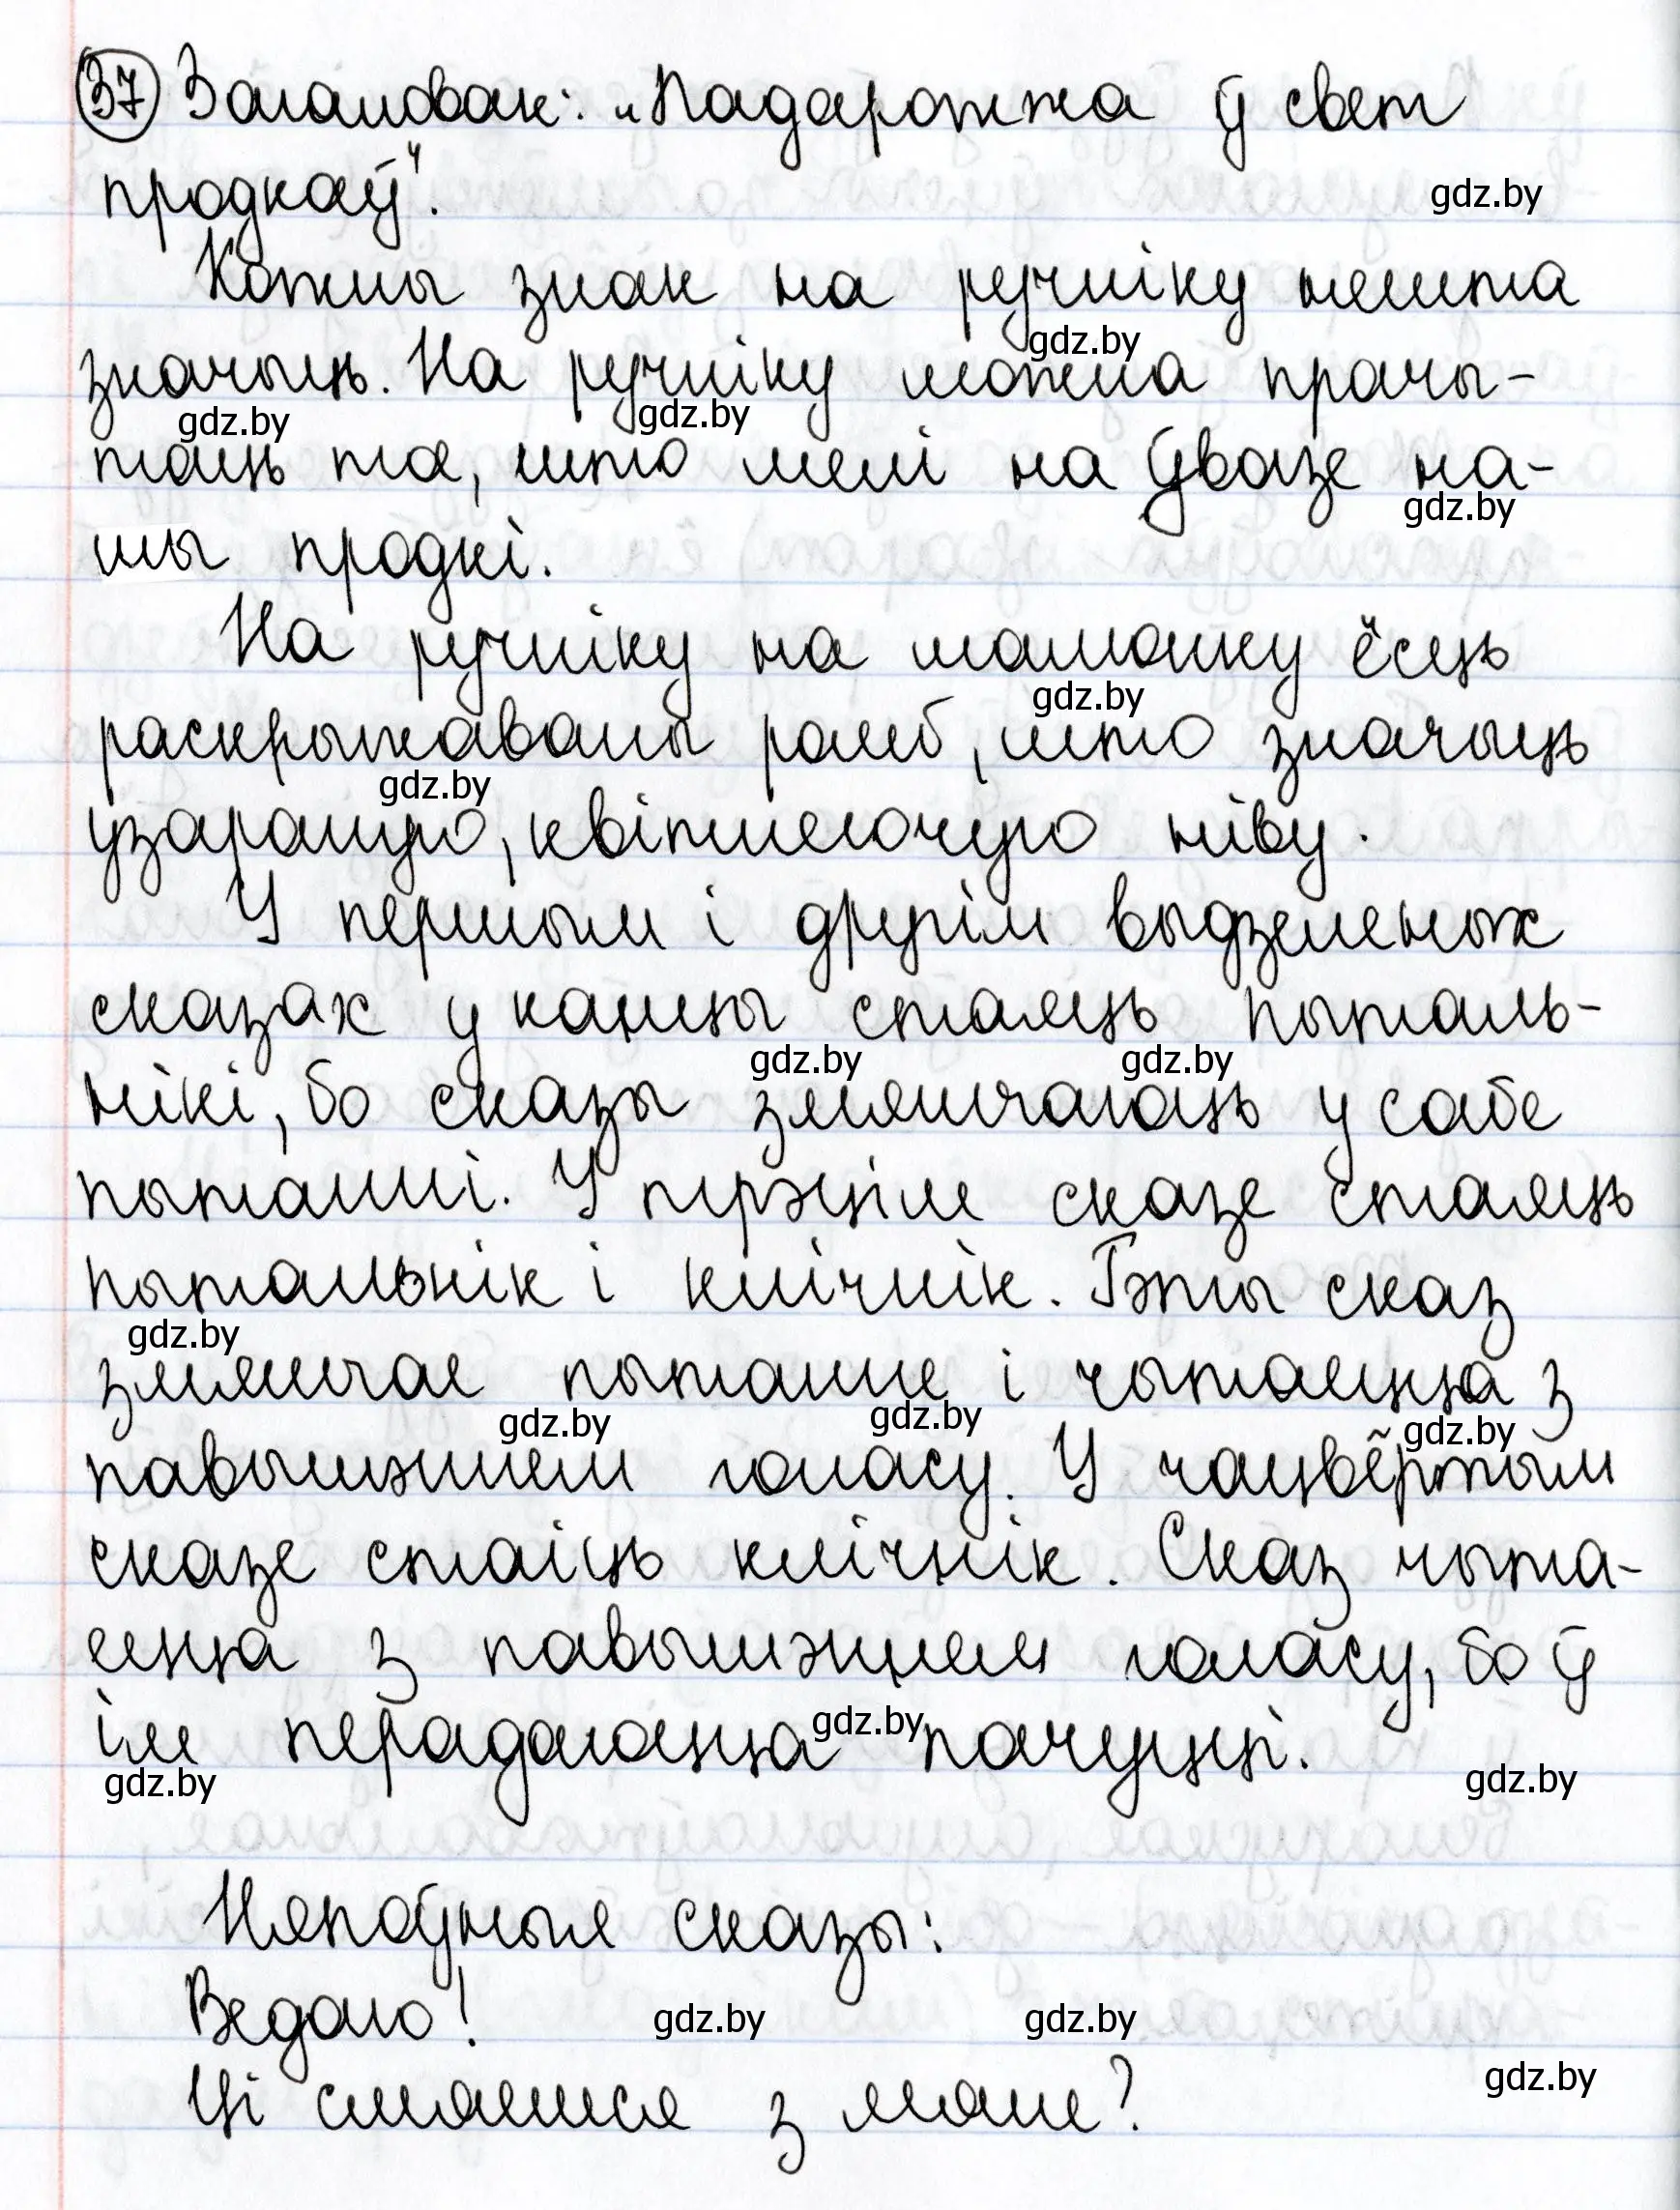 37 Загаловак: „Падарожжа ў свет
продкаў".
gdz.by
Кожны знак на ручніку нешта
значыць. На ручніку можна прачы-
gdz.by
gdz.by
gdz.by
таць тое, што мелі на ўвазе на-
gdz.by
шы продкі.
На ручніку на малюнку ёсць
gdz.by
раскрыжаваны ромб, што значыць
gdz.by
узараную, квітнеючую ніву.
У першым і другім выдзеленых
сказах у канцы стаяць пыталь-
gdz.by
gdz.by
нікі, бо сказы змяшчаюць у сабе
пытанні. У трэцім сказе стаяць
пытальнік і клічнік. Гэты сказ
gdz.by
змяшчае пытанне і чытаецца з
gdz.by
gdz.by
gdz.by
павышэннем голасу. У чацвёртым
сказе стаіць клічнік. Сказ чыта-
ецца з павышэннем голасу, бо ў
ім перадаюцца пачуцці.
gdz.by
gdz.by
gdz.by
Няпоўныя сказы:
Ведаю!
gdz.by
gdz.by
Ці смяешся з мяне?
gdz.by